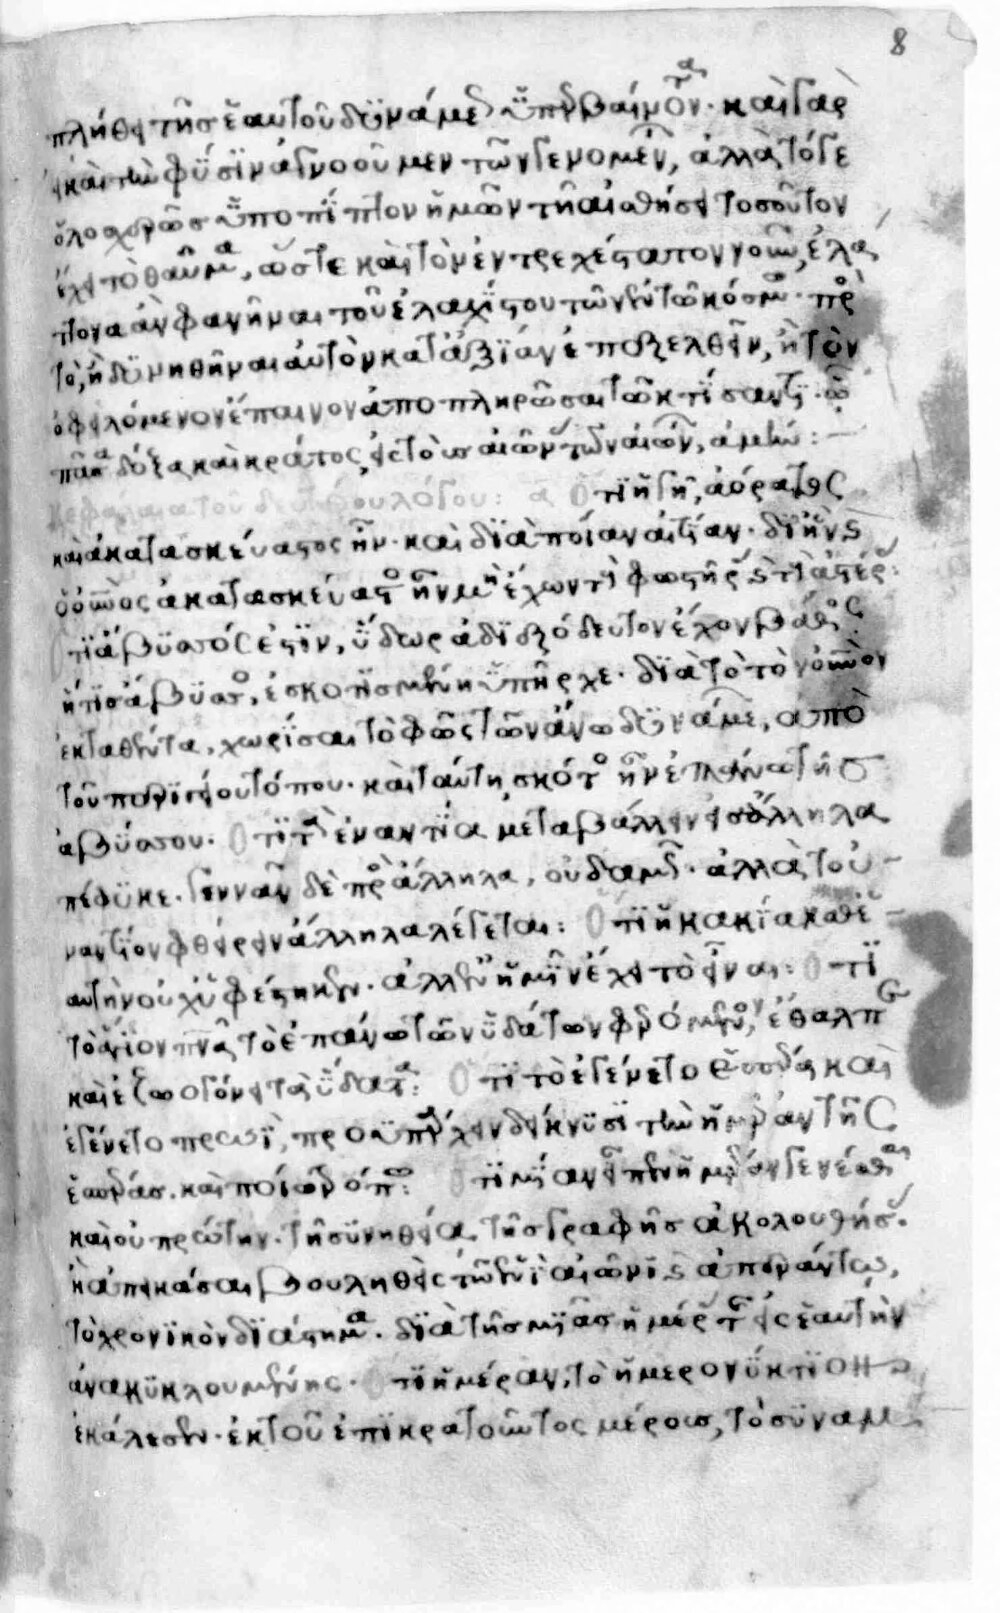 8
πλήθει τῆς ἑαυτοῦ δυνάμεως ὑπερβαίνοντα. καὶ γὰρ
εἰ καὶ τὴν φύσιν ἀγνοοῦμεν τῶν γενομένων, ἀλλὰ τό γε
ὁλοσχερῶς ὑποπίπτον ἡμῶν τῇ αἰσθήσει τοσοῦτον
ἔχει τὸ θαῦμα, ὥστε καὶ τὸν ἐντρεχέστατον νοῦν, ἐλάτ
τονα ἀναφανῆναι τοῦ ἐλαχίστου τῶν ἐν τῷ κόσμῳ. πρὸς
τὸ, ἢ δυνηθῆναι αὐτὸν κατ' ἀξίαν ἐπεξελθεῖν, ἢ τὸν
ὀφειλόμενον ἔπαινον ἀποπληρῶσαι τῷ κτίσαντι. ᾧ
πᾶσα δόξα καὶ κράτος εἰς τοὺς αἰῶνας τῶν αἰώνων, ἀμήν:
κεφάλαια τοῦ δευτέρου λόγου: α Ὅτι ἡ γῆ, ἀόρατος
καὶ ἀκατασκεύαστος ἦν. καὶ διὰ ποίαν αἰτίαν. δι' ἣν καὶ
ὁ οὐρανὸς ἀκατασκεύαστος ἦν μὴ ἔχων τι φωστῆρας καὶ τοὺς ἀστέρας:
Ὅτι ἄβυσσός ἐστιν, ὕδωρ ἀδιεξόδευτον ἔχον βάθος
ἥτις ἄβυσσος, ἐσκοτισμένη ὑπῆρχε. διὰ τὸ τὸν οὐρανὸν
ἐκταθέντα, χωρίσαι τὸ φῶς τῶν ἄνω δυνάμεων, ἀπὸ
τοῦ περιγείου τόπου. καὶ ταύτῃ σκότος ἦν ἐπάνω τῆς
ἀβύσσου: Ὅτι τὰ ἐναντία μεταβάλλειν εἰς ἄλληλα
πέφυκε. γεννᾶν δὲ πρὸς ἄλληλα, οὐδαμῶς. ἀλλὰ τοὐ
ναντίον φθείρειν ἄλληλα λέγεται: Ὅτι ἡ κακία καθ' ἑ
αυτὴν οὐχ ὑφέστηκεν. ἀλλ' ἐν ἡμῖν ἔχει τὸ εἶναι: Ὅτι
τὸ ἅγιον πνεῦμα τὸ ἐπάνω τῶν ὑδάτων φερόμενον, ἔθαλπε
καὶ ἐζωογόνει τὰ ὕδατα: Ὅτι τὸ ἐγένετο ἑσπέρα καὶ
ἐγένετο πρωῒ, προϋπάρχειν δείκνυσι τὴν ἡμέραν τῆς
ἑσπέρας. καὶ ποίῳ τρόπῳ: Ὅτι μίαν εἶπεν ἡμέραν γενέσθαι
καὶ οὐ πρώτην. τῇ συνηθείᾳ τῆς γραφῆς ἀκολουθήσας.
ἢ ἀπεικάσαι βουληθεὶς τῷ ἑνὶ αἰῶνι καὶ ἀπεράντῳ,
τὸ χρονικὸν διάστημα. διὰ τῆς μιᾶς ἡμέρας τῆς εἰς ἑαυτὴν
ἀνακυκλουμένης. Ὅτι ἡμέραν, τὸ ἡμερονύκτιον
ἐκάλεσεν. ἐκ τοῦ ἐπικρατοῦντος μέρους, τὸ συναμ